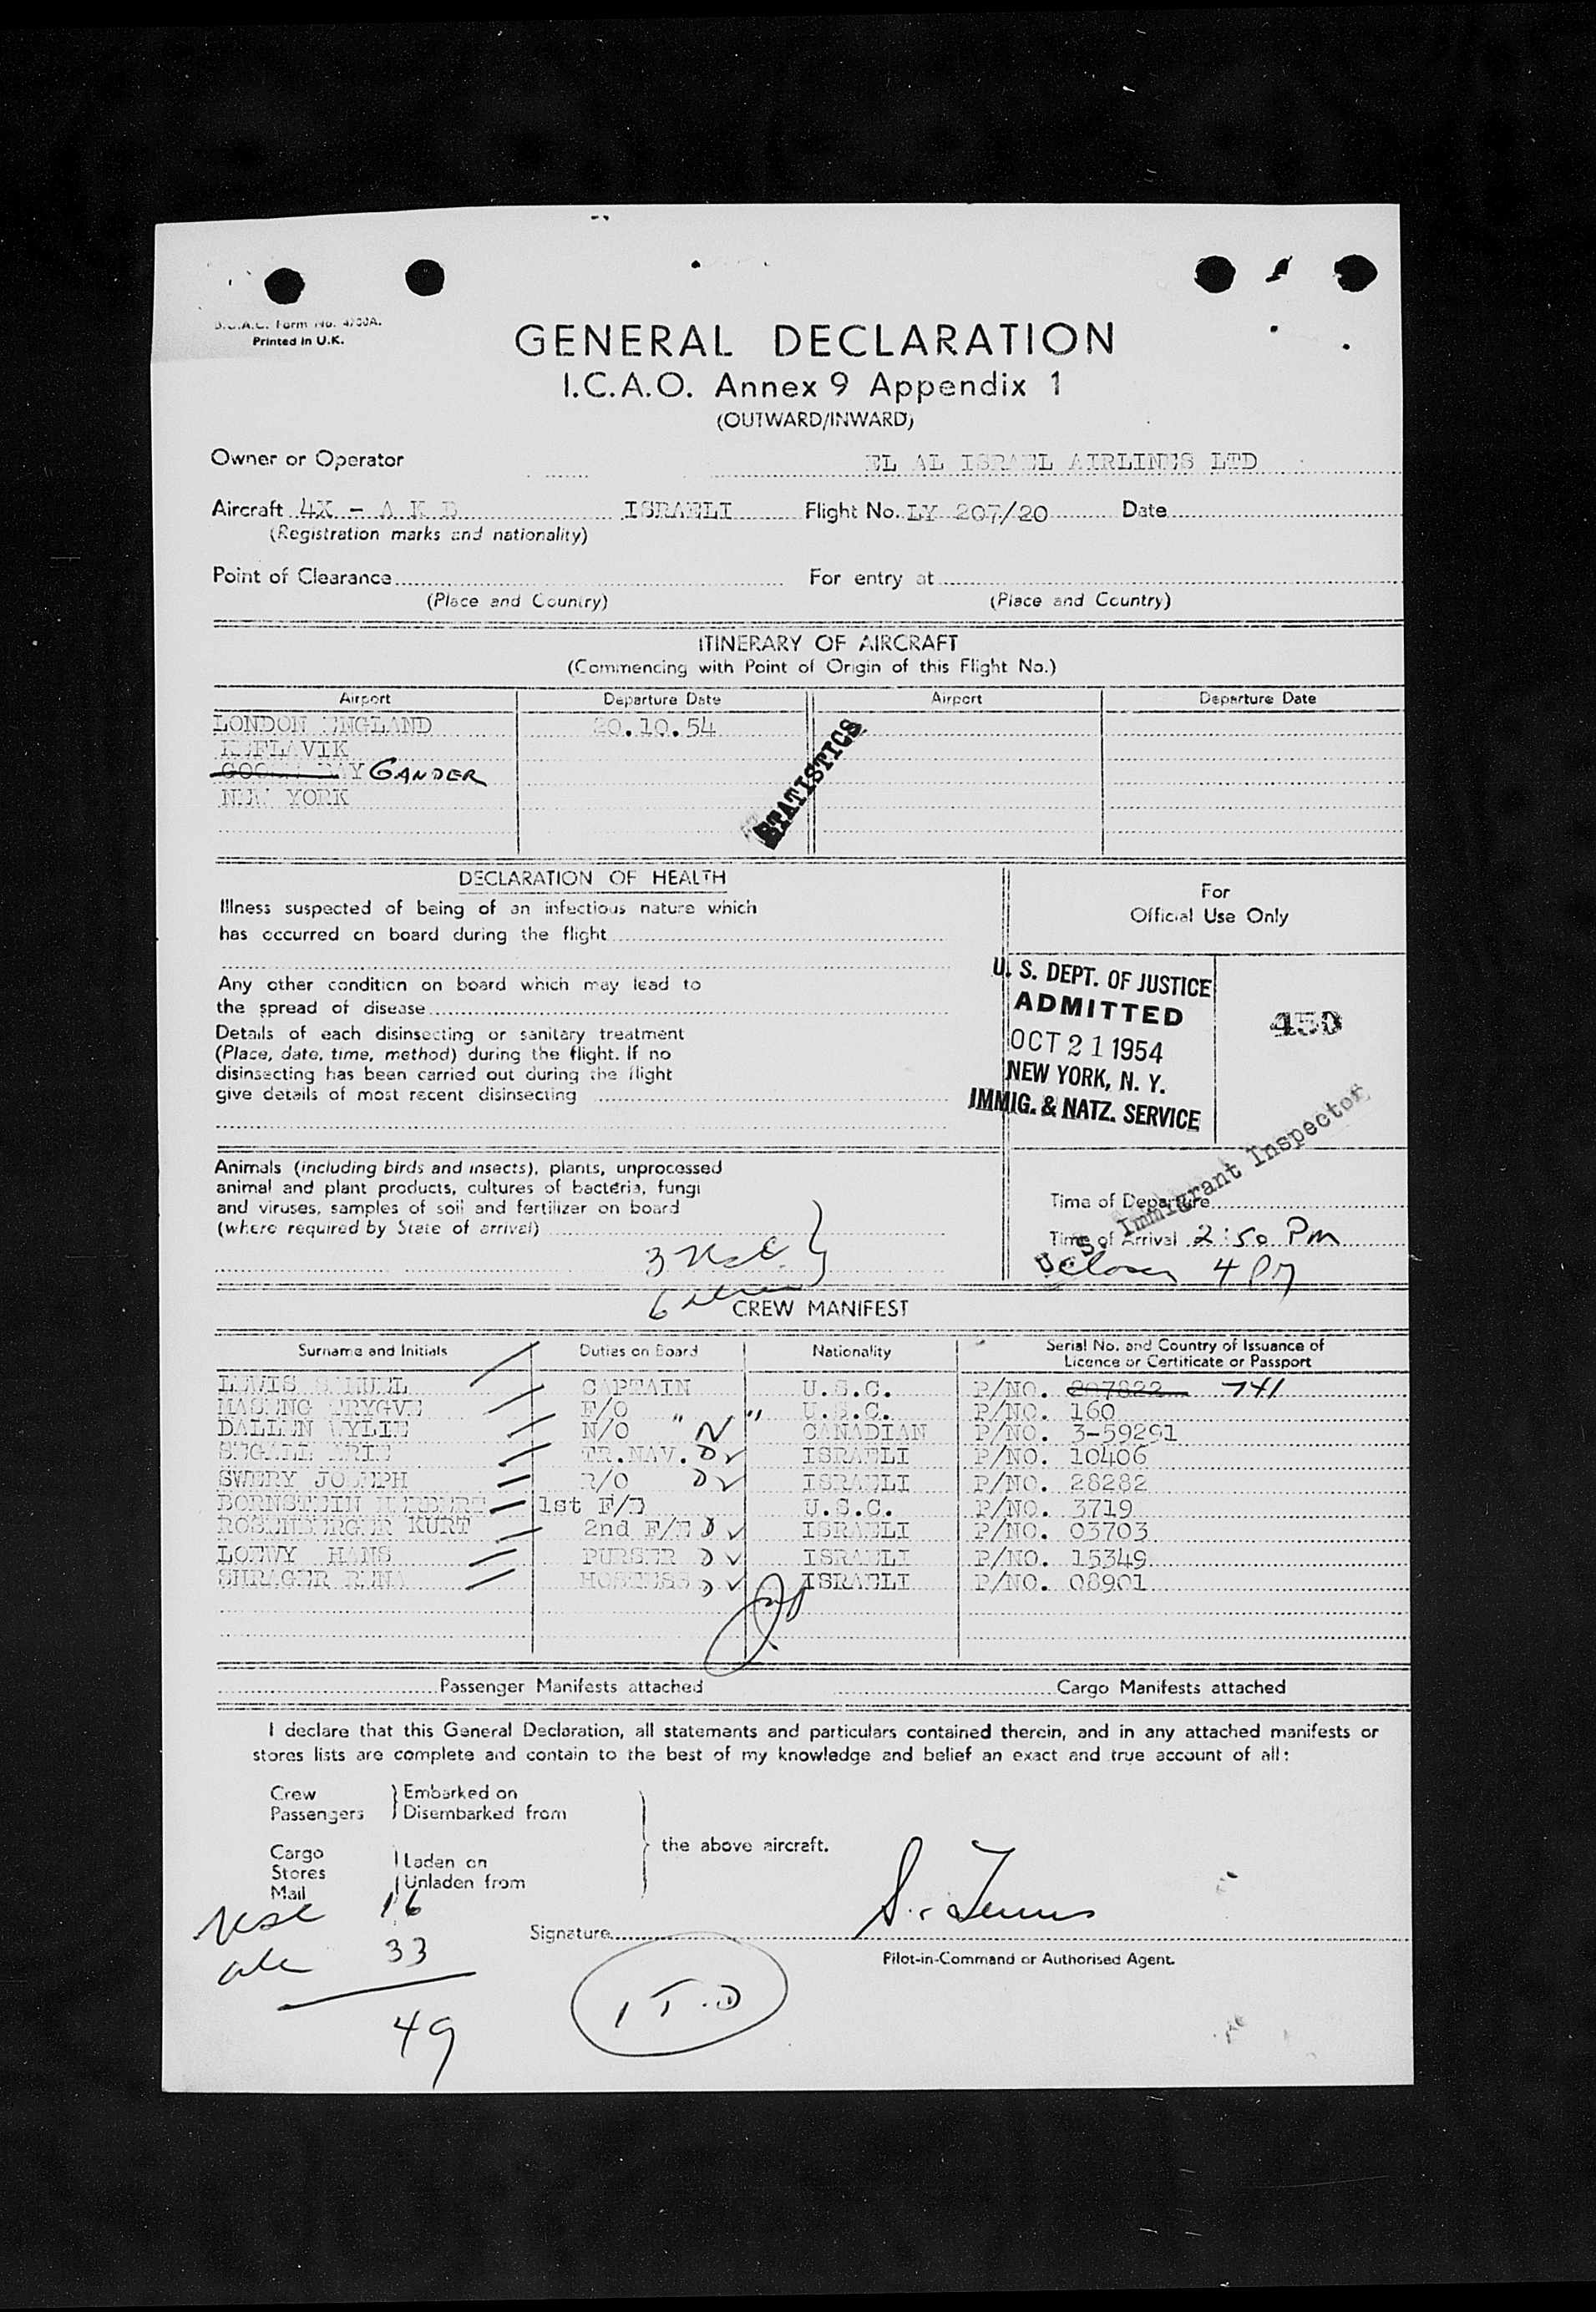 Form No. 4700A.
Printed in U.K.
GENERAL DECLARATION
I.C.A.O. Annex 9 Appendix 1
(OUTWARD/INWARD)
Owner or Operator EL AL ISRAEL AIRLINES LTD
Aircraft 4X - A K B ISRAELI Flight No. LY 207/20 Date
(Registration marks and nationality)
Point of Clearance For entry at
(Place and Country) (Place and Country)
ITINERARY OF AIRCRAFT
(Commencing with Point of Origin of this Flight No.)
Airport Departure Date Airport Departure Date
LONDON ENGLAND 20.10.54
KEFLAVIK
GOOSE BAY GANDER
NEW YORK
STATISTICS
DECLARATION OF HEALTH
Illness suspected of being of an infectious nature which
has occurred on board during the flight
Any other condition on board which may lead to
the spread of disease
Details of each disinsecting or sanitary treatment
(Place, date, time, method) during the flight. If no
disinsecting has been carried out during the flight
give details of most recent disinsecting
For
Official Use Only
U. S. DEPT. OF JUSTICE
ADMITTED
OCT 21 1954
NEW YORK, N. Y.
IMMIG. & NATZ. SERVICE
450
U. S. Immigrant Inspector
Animals (including birds and insects), plants, unprocessed
animal and plant products, cultures of bacteria, fungi
and viruses, samples of soil and fertilizer on board
(where required by State of arrival)
Time of Departure
Time of Arrival 2:50 PM
4 PM
3 USC
6
CREW MANIFEST
Surname and Initials Duties on Board Nationality Serial No. and Country of Issuance of
Licence or Certificate or Passport
LEWIS SAMUEL CAPTAIN U.S.C. P/NO. 207822 741
HASENG TRYGVE F/O U.S.C. P/NO. 160
DALLEN WYLIE N/O " N " CANADIAN P/NO. 3-59291
SEGALL ARIE TR.NAV. ISRAELI P/NO. 10406
SWERY JOSEPH R/O ISRAELI P/NO. 28282
BORNSTEIN HERBERT 1st F/E U.S.C. P/NO. 3719
ROSENBERGER KURT 2nd F/E ISRAELI P/NO. 03703
LOEWY HANS PURSER ISRAELI P/NO. 15349
SHRAGER RENA HOSTESS ISRAELI P/NO. 08901
Passenger Manifests attached Cargo Manifests attached
I declare that this General Declaration, all statements and particulars contained therein, and in any attached manifests or
stores lists are complete and contain to the best of my knowledge and belief an exact and true account of all:
Crew Embarked on
Passengers Disembarked from
the above aircraft.
Cargo Laden on
Stores Unladen from
Mail
USC 16
33
49
Signature
Pilot-in-Command or Authorised Agent.
1 T.D